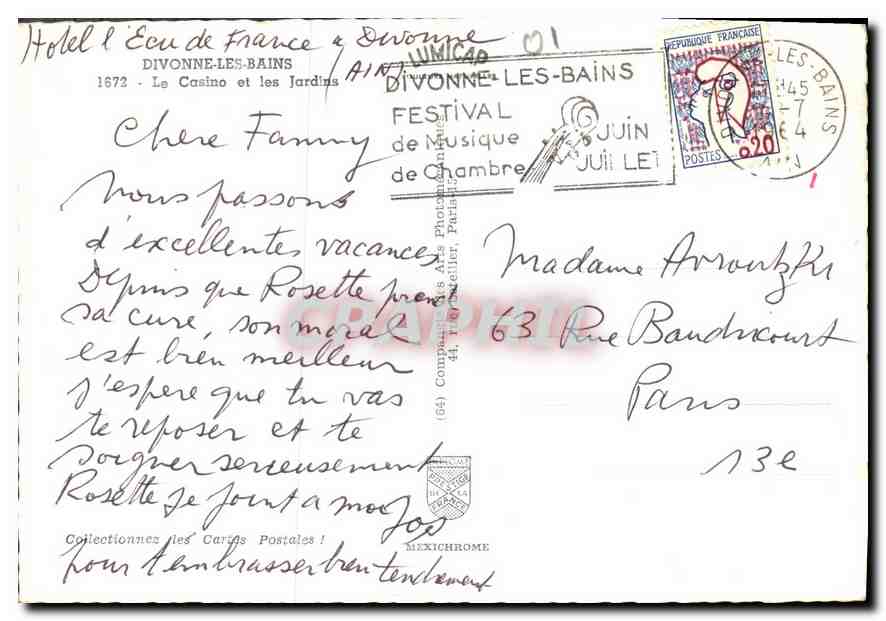 Hotel l'Ecu de France à Divonne
(AIN)
DIVONNE-LES-BAINS
1672 - Le Casino et les Jardins
LUMICAP
01
DIVONNE-LES-BAINS
FESTIVAL
de Musique
de Chambre
JUIN
JUILLET
REPUBLIQUE FRANÇAISE
POSTES 0,20
-LES-BAINS
45
-7
1964
AIN
Chere Fanny
Nous passons
d'excellentes vacances
Depuis que Rosette prend
sa cure, son moral
est bien meilleur
j'espere que tu vas
te reposer et te
soigner serieusement
Rosette se joint a moi
pour t'embrasser bien tendrement
Joe
Madame Avroutzki
63 Rue Baudricourt
Paris
13e
(64) Compagnie des Arts Photomécaniques
44, rue Letellier, Paris-15
CRAPHIL
PRESTIGE
DE LA
FRANCE
MEXICHROME
Collectionnez les Cartes Postales !